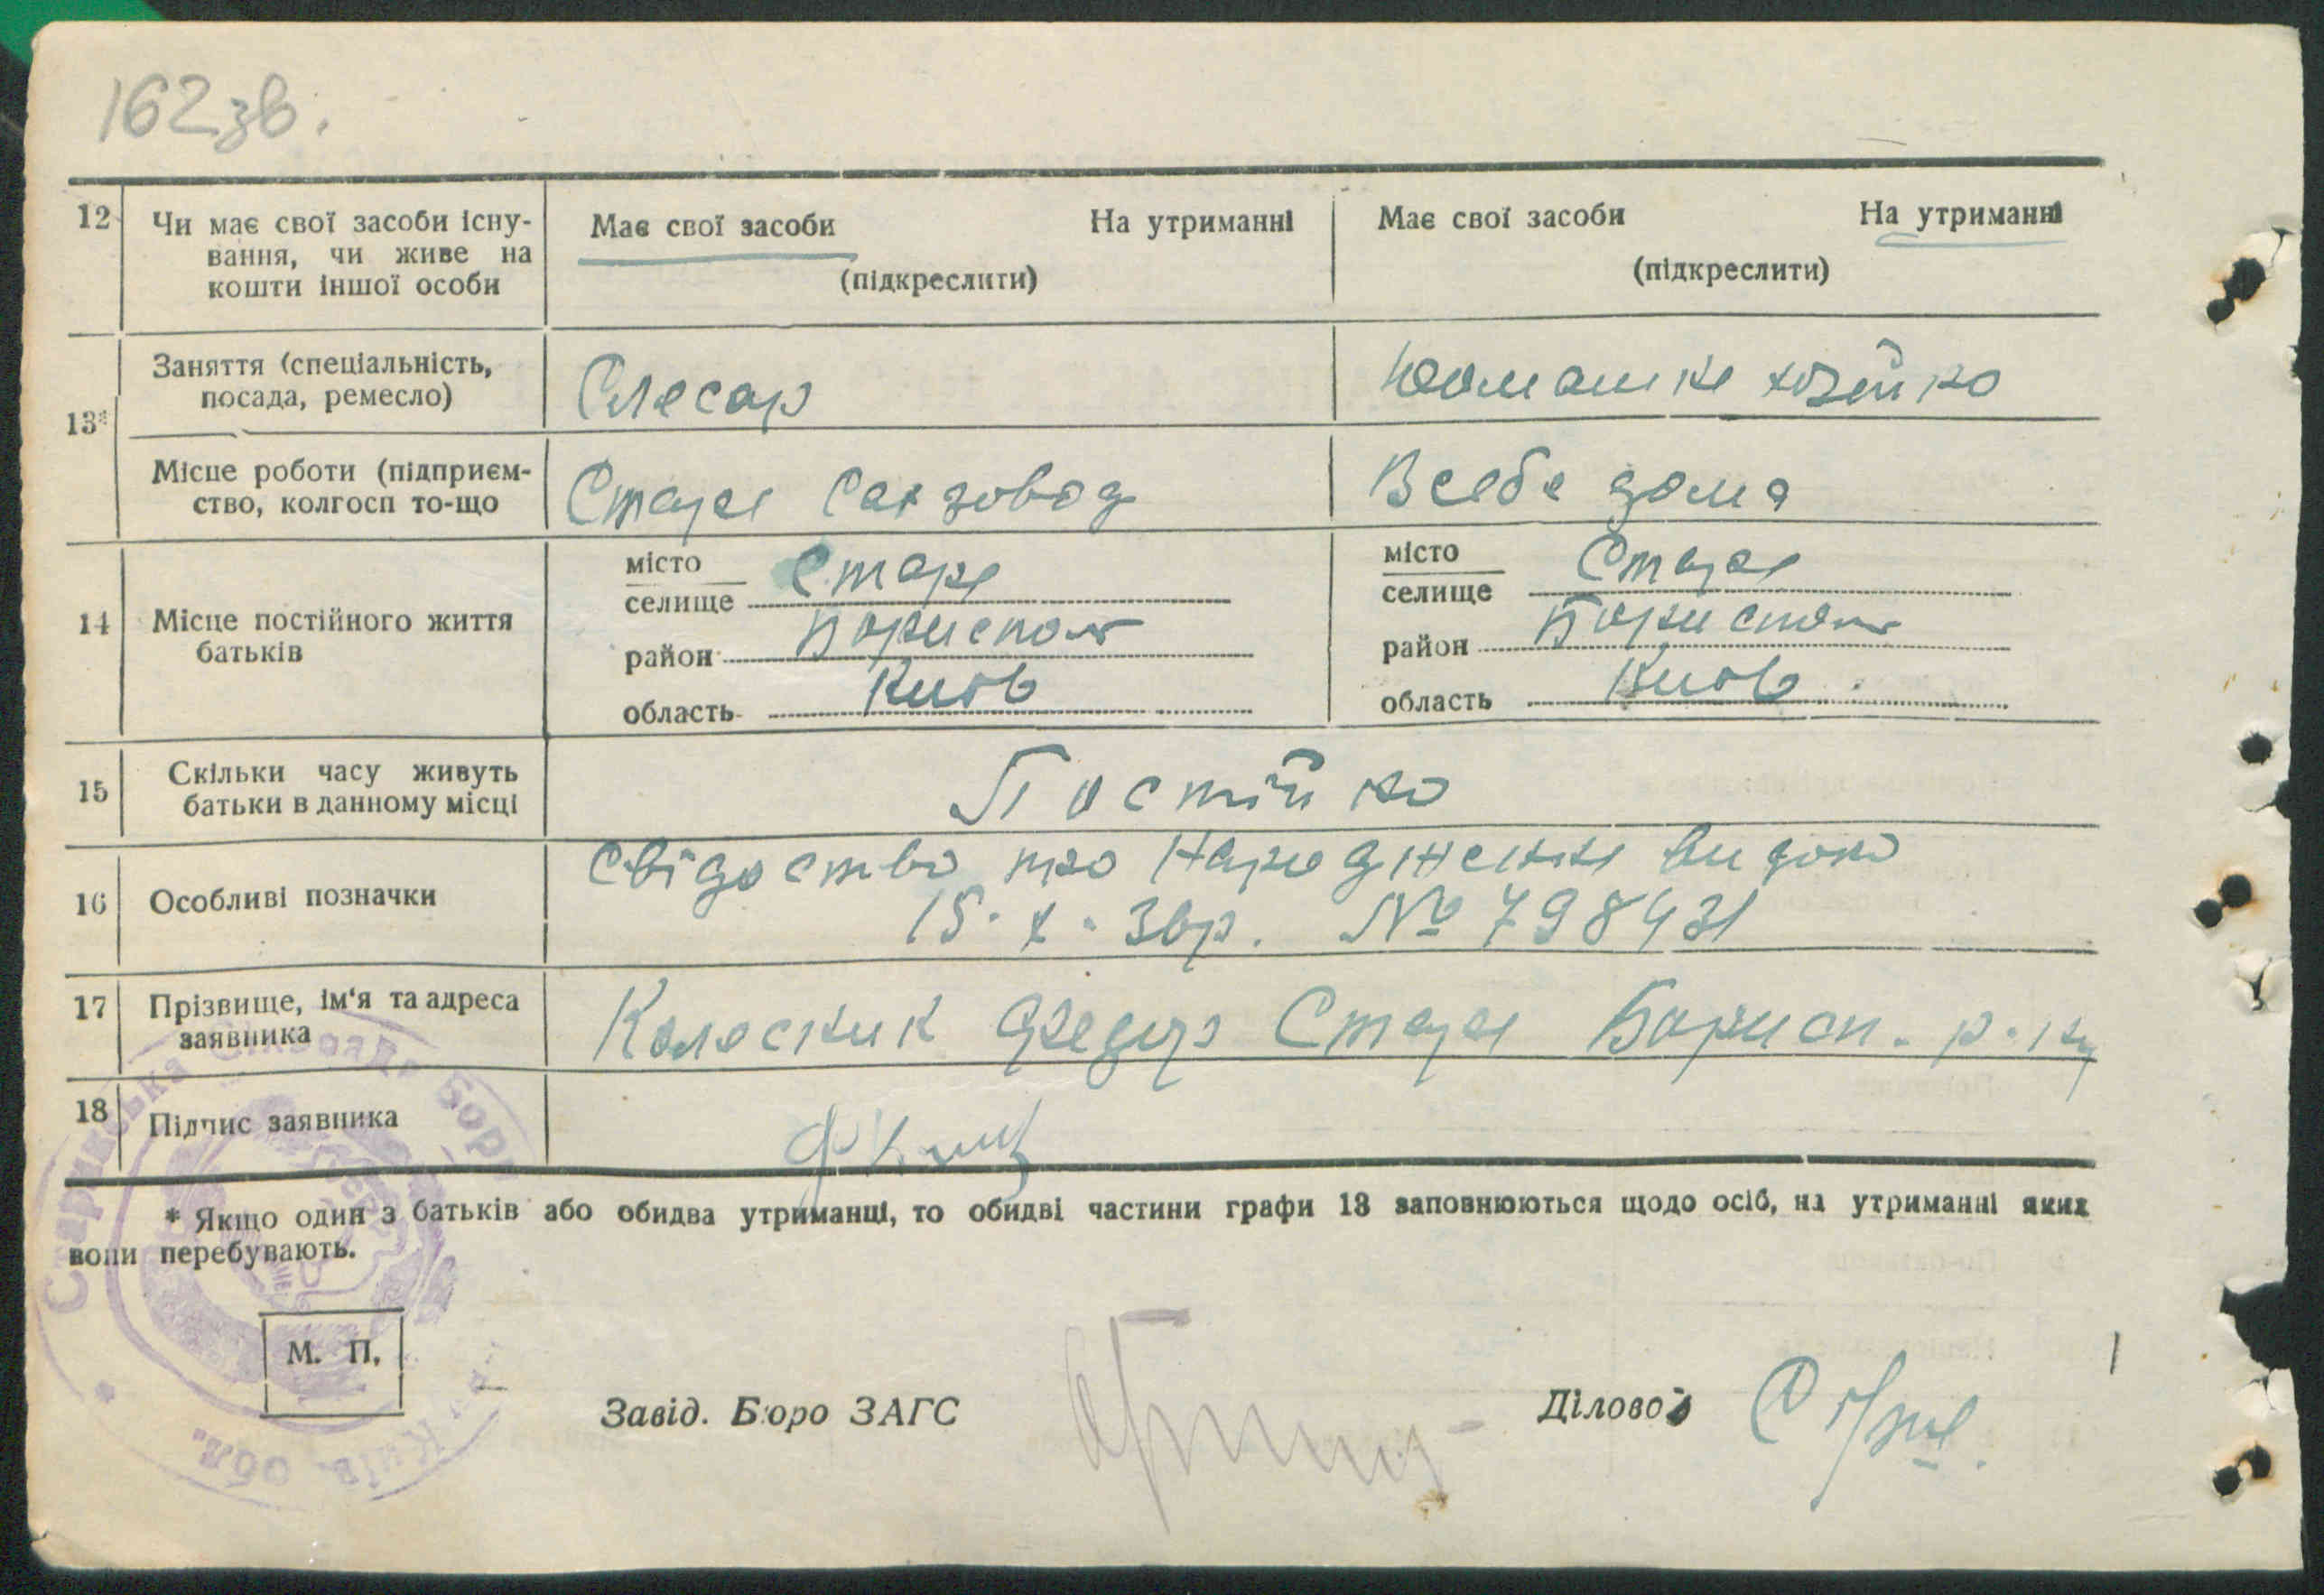 162зв.
12 Чи має свої засоби існу- Має свої засоби На утриманні Має свої засоби На утриманні
вання, чи живе на
кошти іншої особи (підкреслити) (підкреслити)
Заняття (спеціальність,
посада, ремесло) Слесар
13*
Місце роботи (підприєм-
ство, колгосп то-що Старе Сахзовод В себе дома
14 Місце постійного життя
батьків
місто Старе місто Старе
селище селище
район Бориспол район Бориспол
область Київ область Київ
15 Скільки часу живуть
батьки в данному місці Постійно
16 Особливі позначки Свідоство про Народження видоно
15. X. 36р. № 798431
17 Прізвище, ім'я та адреса
заявника Колесник Федір Старе Борисп. р-ну
18 Підпис заявника
* Якщо один з батьків або обидва утриманці, то обидві частини графи 13 заповнюються щодо осіб, на утриманні яких
вони перебувають.
М. П.
Завід. Бюро ЗАГС Діловод
Київ. обл.